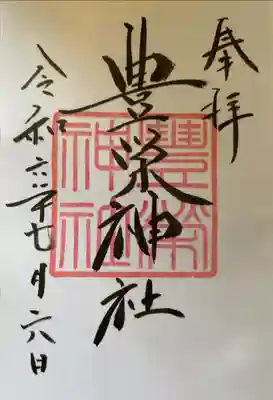 奉拝
豊栄神社
豐榮神社
令和六年七月六日